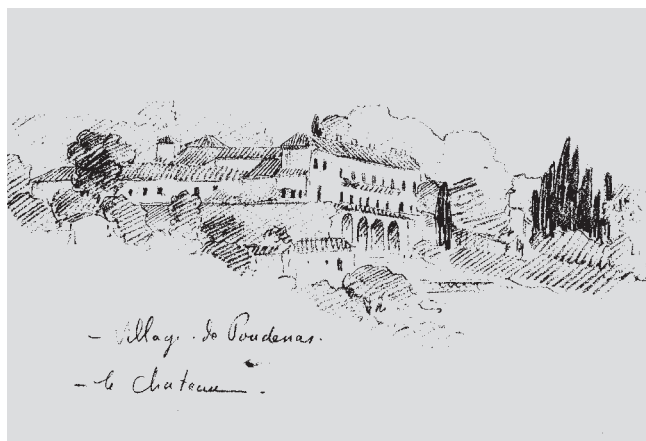 - Village de Poudenas.
- le Chateau.